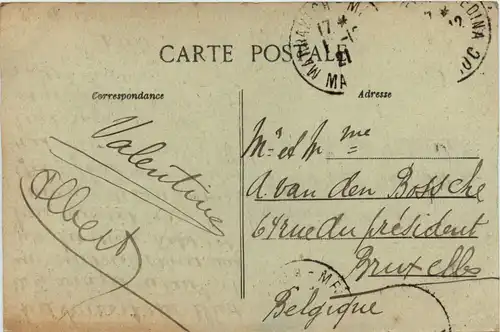 MARRAKECH - MEDINA
17 *
1 - 7
21
MA
CARTE POSTALE
Correspondance
Adresse
Valentine
Albert
Mr et Mme
A. van den Bossche
64 rue du président
Bruxelles
Belgique